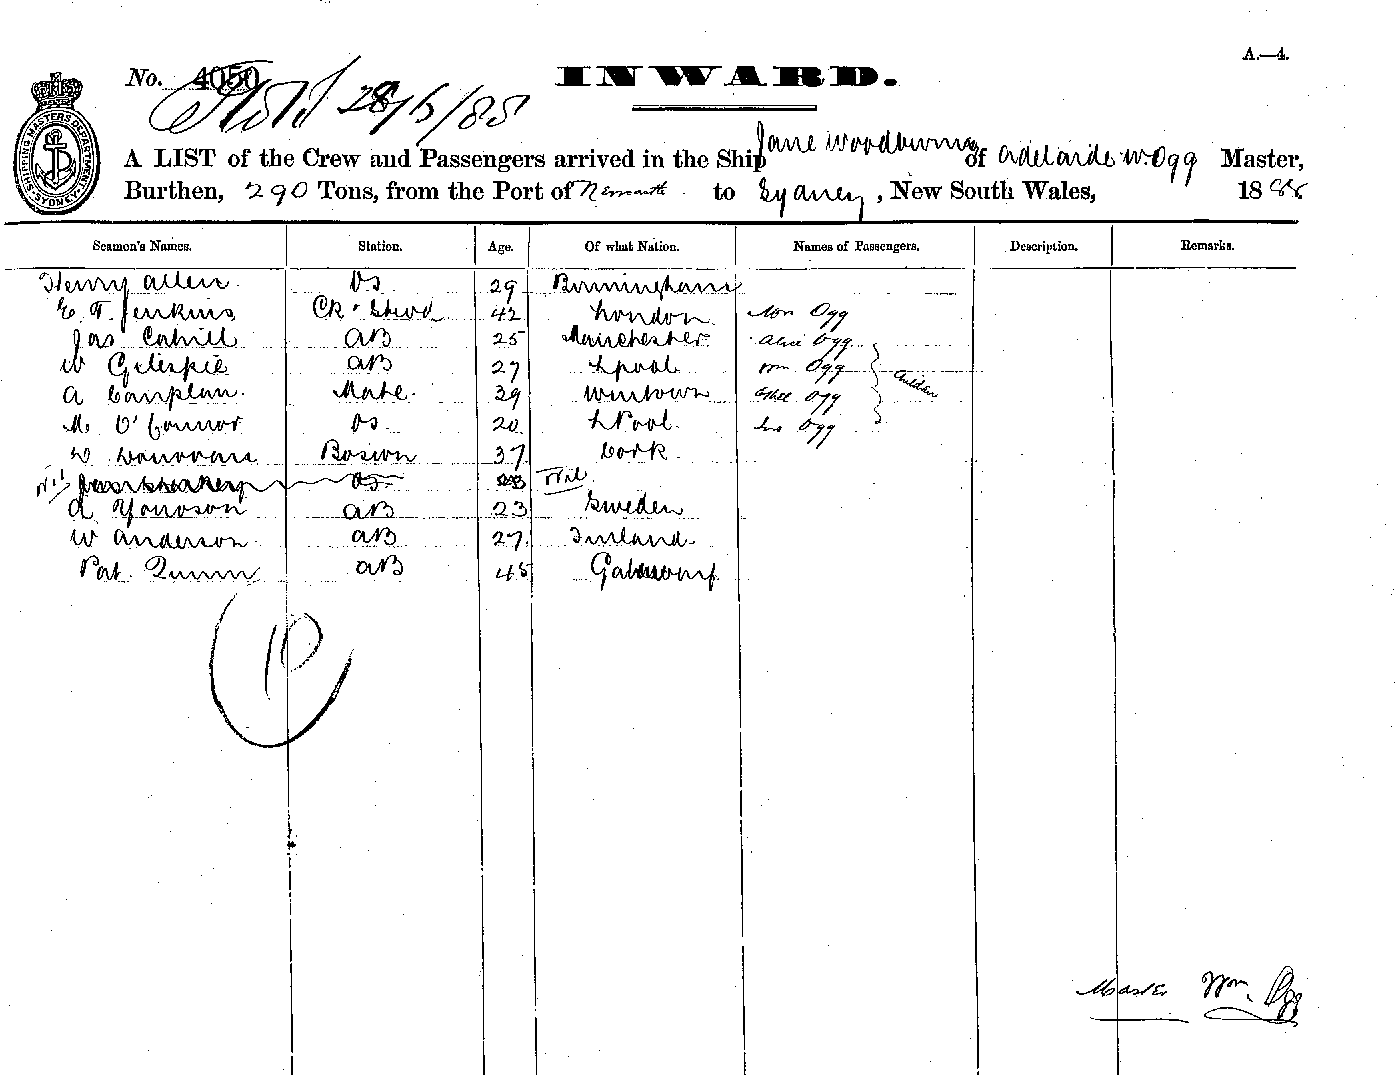 A.—4.
No. 4050 INWARD.
SHIPPING MASTERS DEPARTMENT SYDNEY
28/5/88
A LIST of the Crew and Passengers arrived in the Ship Jane Woodburn of Adelaide W. Ogg Master,
Burthen, 290 Tons, from the Port of Newcastle to Sydney, New South Wales, 1888
Seamen's Names. Station. Age. Of what Nation. Names of Passengers. Description. Remarks.
Henry Allen OS 29 Birmingham
E. T. Jenkins Ck & Stewd 42 London Ogg
Jas Cahill AB 25 Manchester Alice Ogg
W Gilespie AB 27 Lpool Wm Ogg
A Mate 39 Ethel Ogg Children
M. O'Connor OS 20 LPool Ogg
D Donovan Boswn 37 Cork
Nil OS Nil
A AB 23 Sweden
W Anderson AB 27 Finland
Pat Quinn AB 45
10
Master Wm. Ogg